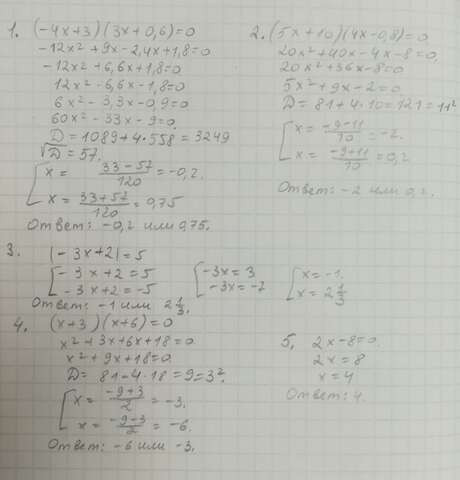 1. (-4x+3)(3x+0,6)=0
-12x²+9x-2,4x+1,8=0
-12x²+6,6x+1,8=0
12x²-6,6x-1,8=0
6x²-3,3x-0,9=0
60x²-33x-9=0.
D=1089+4*558=3249
√D=57.
x= (33-57)/120 =-0,2.
x= (33+57)/120 =0,75
Ответ: -0,2 или 0,75.
2. (5x+10)(4x-0,8)=0
20x²+40x-4x-8=0.
20x²+36x-8=0
5x²+9x-2=0
D=81+4*10=121=11²
x= (-9-11)/10 =-2.
x= (-9+11)/10 =0,2
Ответ: -2 или 0,2.
3. |-3x+2|=5
-3x+2=5
-3x+2=-5
-3x=3
-3x=-7
x=-1.
x=2 1/3
Ответ: -1 или 2 1/3.
4. (x+3)(x+6)=0
x²+3x+6x+18=0
x²+9x+18=0.
D=81-4*18=9=3².
x= (-9+3)/2 =-3.
x= (-9-3)/2 =-6.
Ответ: -6 или -3.
5. 2x-8=0.
2x=8
x=4
Ответ: 4.